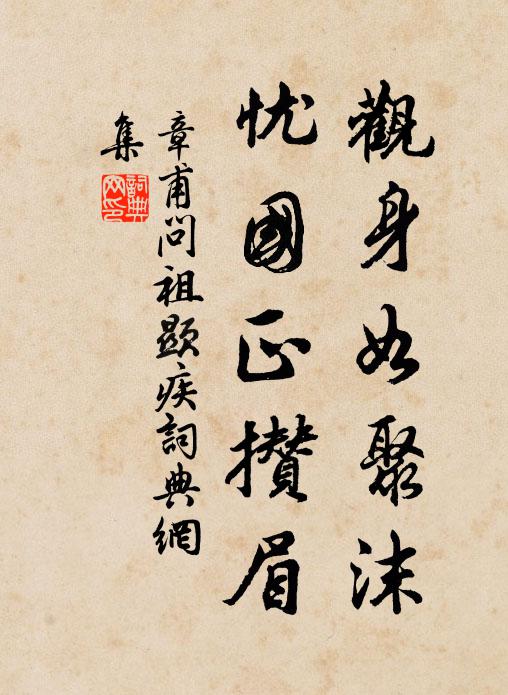 觀身如聚沫
忧國正攅眉
章甫問祖顯疾詞典網
集
詞典
网印